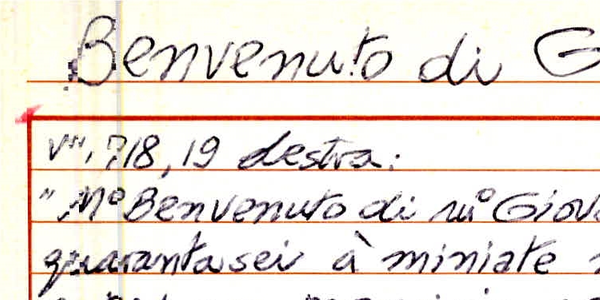 Benvenuto di G
18, 19 destra:
" Mº Benvenuto di mº Giov
quarantasei à miniate